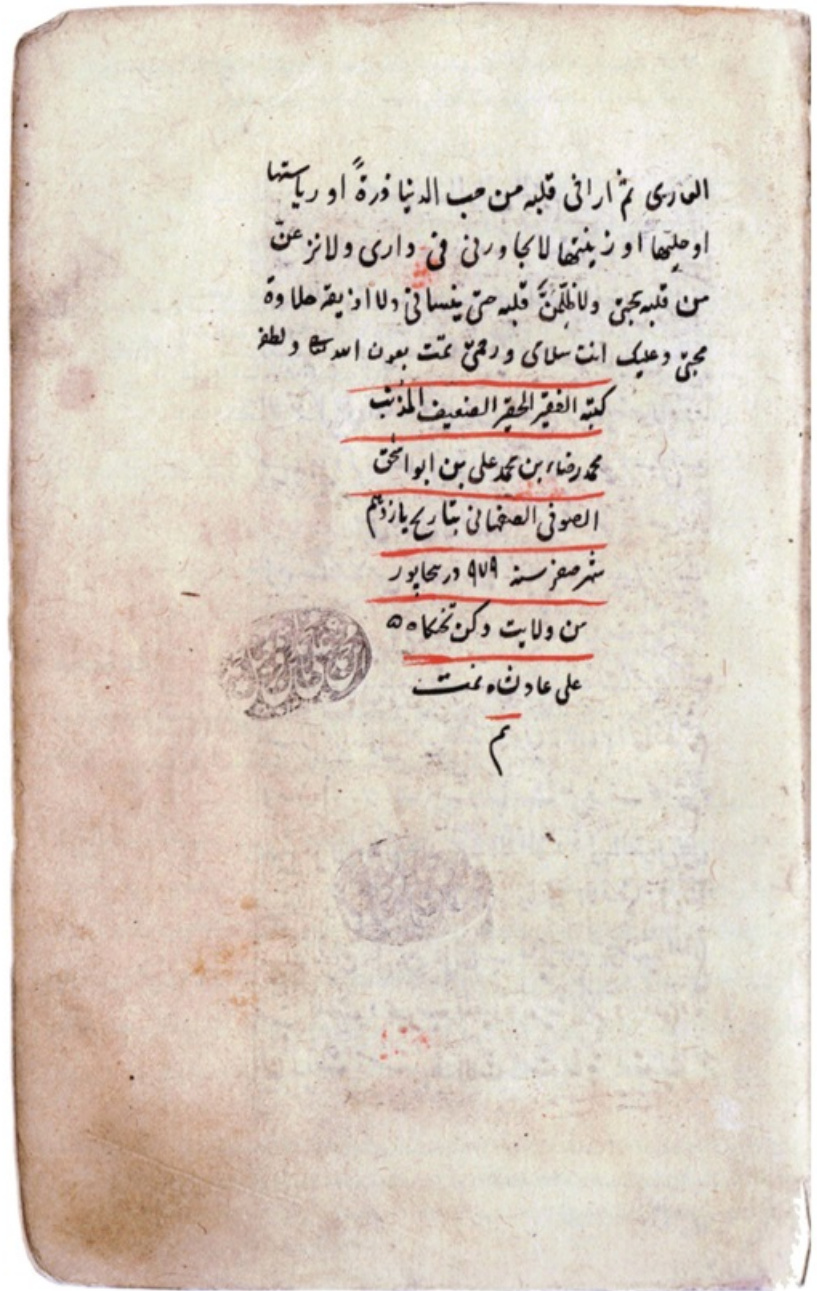 العاري ثم ارا في قلبه من حب الدنيا ذرةً او رياستها
او حليتها او زينتها لا يجاورني في داري ولانزعن
من قلبه محبتي ولاظلمنّ قلبه حتى ينساني ولا اذيقه حلاوة
محبتي وعليك انت سلامي ورحمتي تمت بعون الله ولطفه
كتبه الفقير الحقير الضعيف المذنب
محمد رضاء بن محمد علي بن ابو
الصوفي الصفهاني بتاريخ يازدهم
شهر صفر سنه ٩٧٩ در بيجاپور
من ولايت دكن تختكاه
على عادلشاه تمت
تم